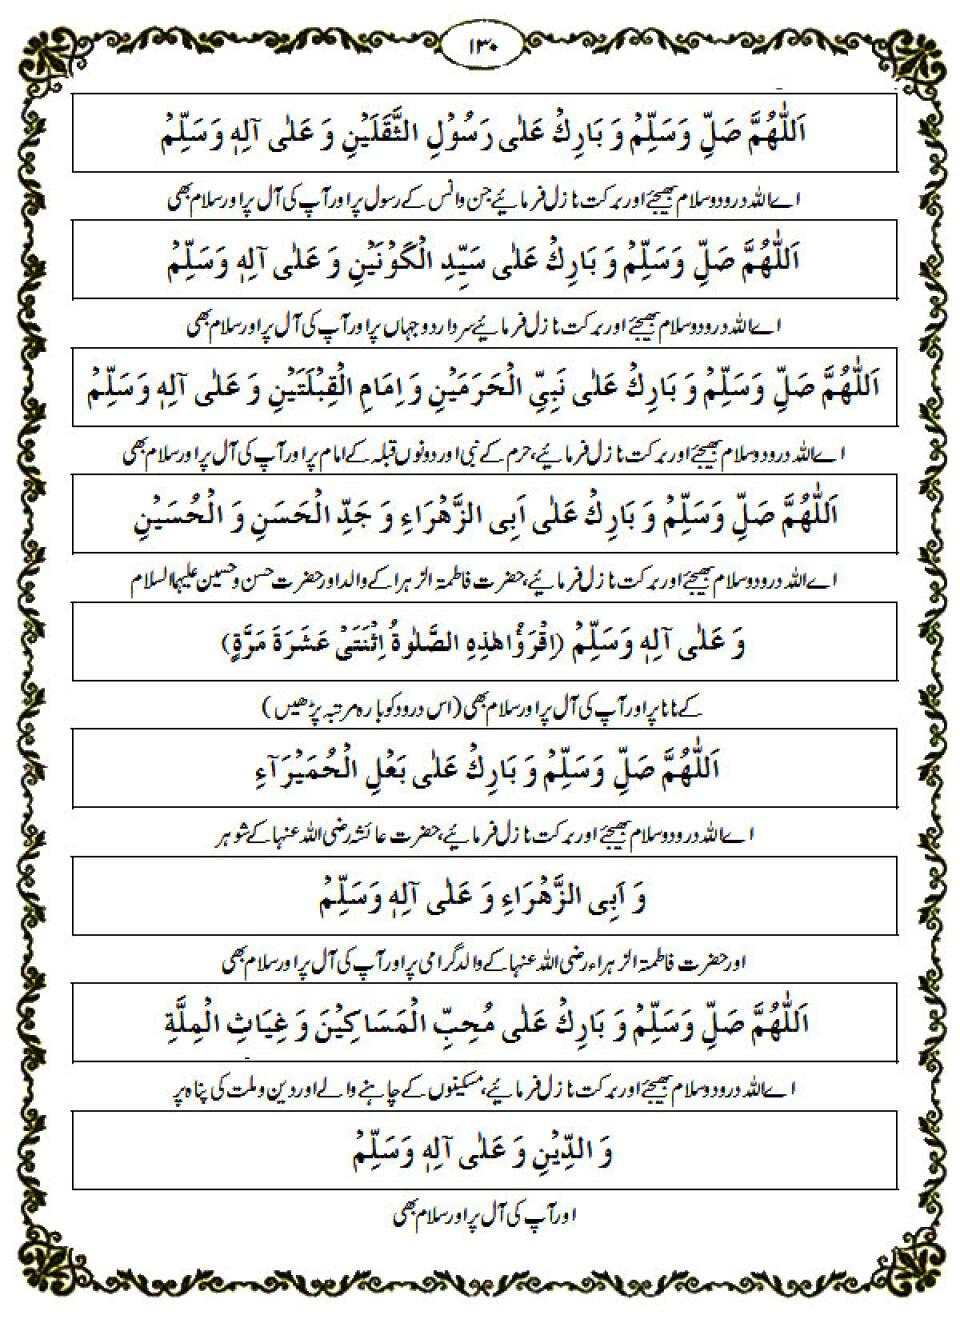 ۱۳۰
اَللّٰهُمَّ صَلِّ وَسَلِّمْ وَ بَارِكْ عَلٰى رَسُوْلِ الثَّقَلَيْنِ وَ عَلٰى آلِهٖ وَسَلِّمْ
اے اللہ درود و سلام بھیجئے اور برکت نازل فرمائیے جن وانس کے رسول پر اور آپ کی آل پر اور سلام بھی
اَللّٰهُمَّ صَلِّ وَسَلِّمْ وَ بَارِكْ عَلٰى سَيِّدِ الْكَوْنَيْنِ وَ عَلٰى آلِهٖ وَسَلِّمْ
اے اللہ درود و سلام بھیجئے اور برکت نازل فرمائیے سردار دو جہاں پر اور آپ کی آل پر اور سلام بھی
اَللّٰهُمَّ صَلِّ وَسَلِّمْ وَ بَارِكْ عَلٰى نَبِيِّ الْحَرَمَيْنِ وَ اِمَامِ الْقِبْلَتَيْنِ وَ عَلٰى آلِهٖ وَسَلِّمْ
اے اللہ درود و سلام بھیجئے اور برکت نازل فرمائیے، حرم کے نبی اور دونوں قبلہ کے امام پر اور آپ کی آل پر اور سلام بھی
اَللّٰهُمَّ صَلِّ وَسَلِّمْ وَ بَارِكْ عَلٰى اَبِى الزَّهْرَاءِ وَ جَدِّ الْحَسَنِ وَ الْحُسَيْنِ
اے اللہ درود و سلام بھیجئے اور برکت نازل فرمائیے، حضرت فاطمۃ الزہرا کے والد اور حضرت حسن و حسین علیہما السلام
وَ عَلٰى آلِهٖ وَسَلِّمْ (اِقْرَؤُا هٰذِهِ الصَّلٰوةُ اِثْنَتَىْ عَشَرَةَ مَرَّةٍ)
کے نانا پر اور آپ کی آل پر اور سلام بھی (اس درود کو بارہ مرتبہ پڑھیں)
اَللّٰهُمَّ صَلِّ وَسَلِّمْ وَ بَارِكْ عَلٰى بَعْلِ الْحُمَيْرَآءِ
اے اللہ درود و سلام بھیجئے اور برکت نازل فرمائیے، حضرت عائشہ رضی اللہ عنہا کے شوہر
وَ اَبِى الزَّهْرَاءِ وَ عَلٰى آلِهٖ وَسَلِّمْ
اور حضرت فاطمۃ الزہراء رضی اللہ عنہا کے والد گرامی پر اور آپ کی آل پر اور سلام بھی
اَللّٰهُمَّ صَلِّ وَسَلِّمْ وَ بَارِكْ عَلٰى مُحِبِّ الْمَسَاكِيْنَ وَ غِيَاثِ الْمِلَّةِ
اے اللہ درود و سلام بھیجئے اور برکت نازل فرمائیے، مسکینوں کے چاہنے والے اور دین و ملت کی پناہ پر
وَ الدِّيْنِ وَ عَلٰى آلِهٖ وَسَلِّمْ
اور آپ کی آل پر اور سلام بھی